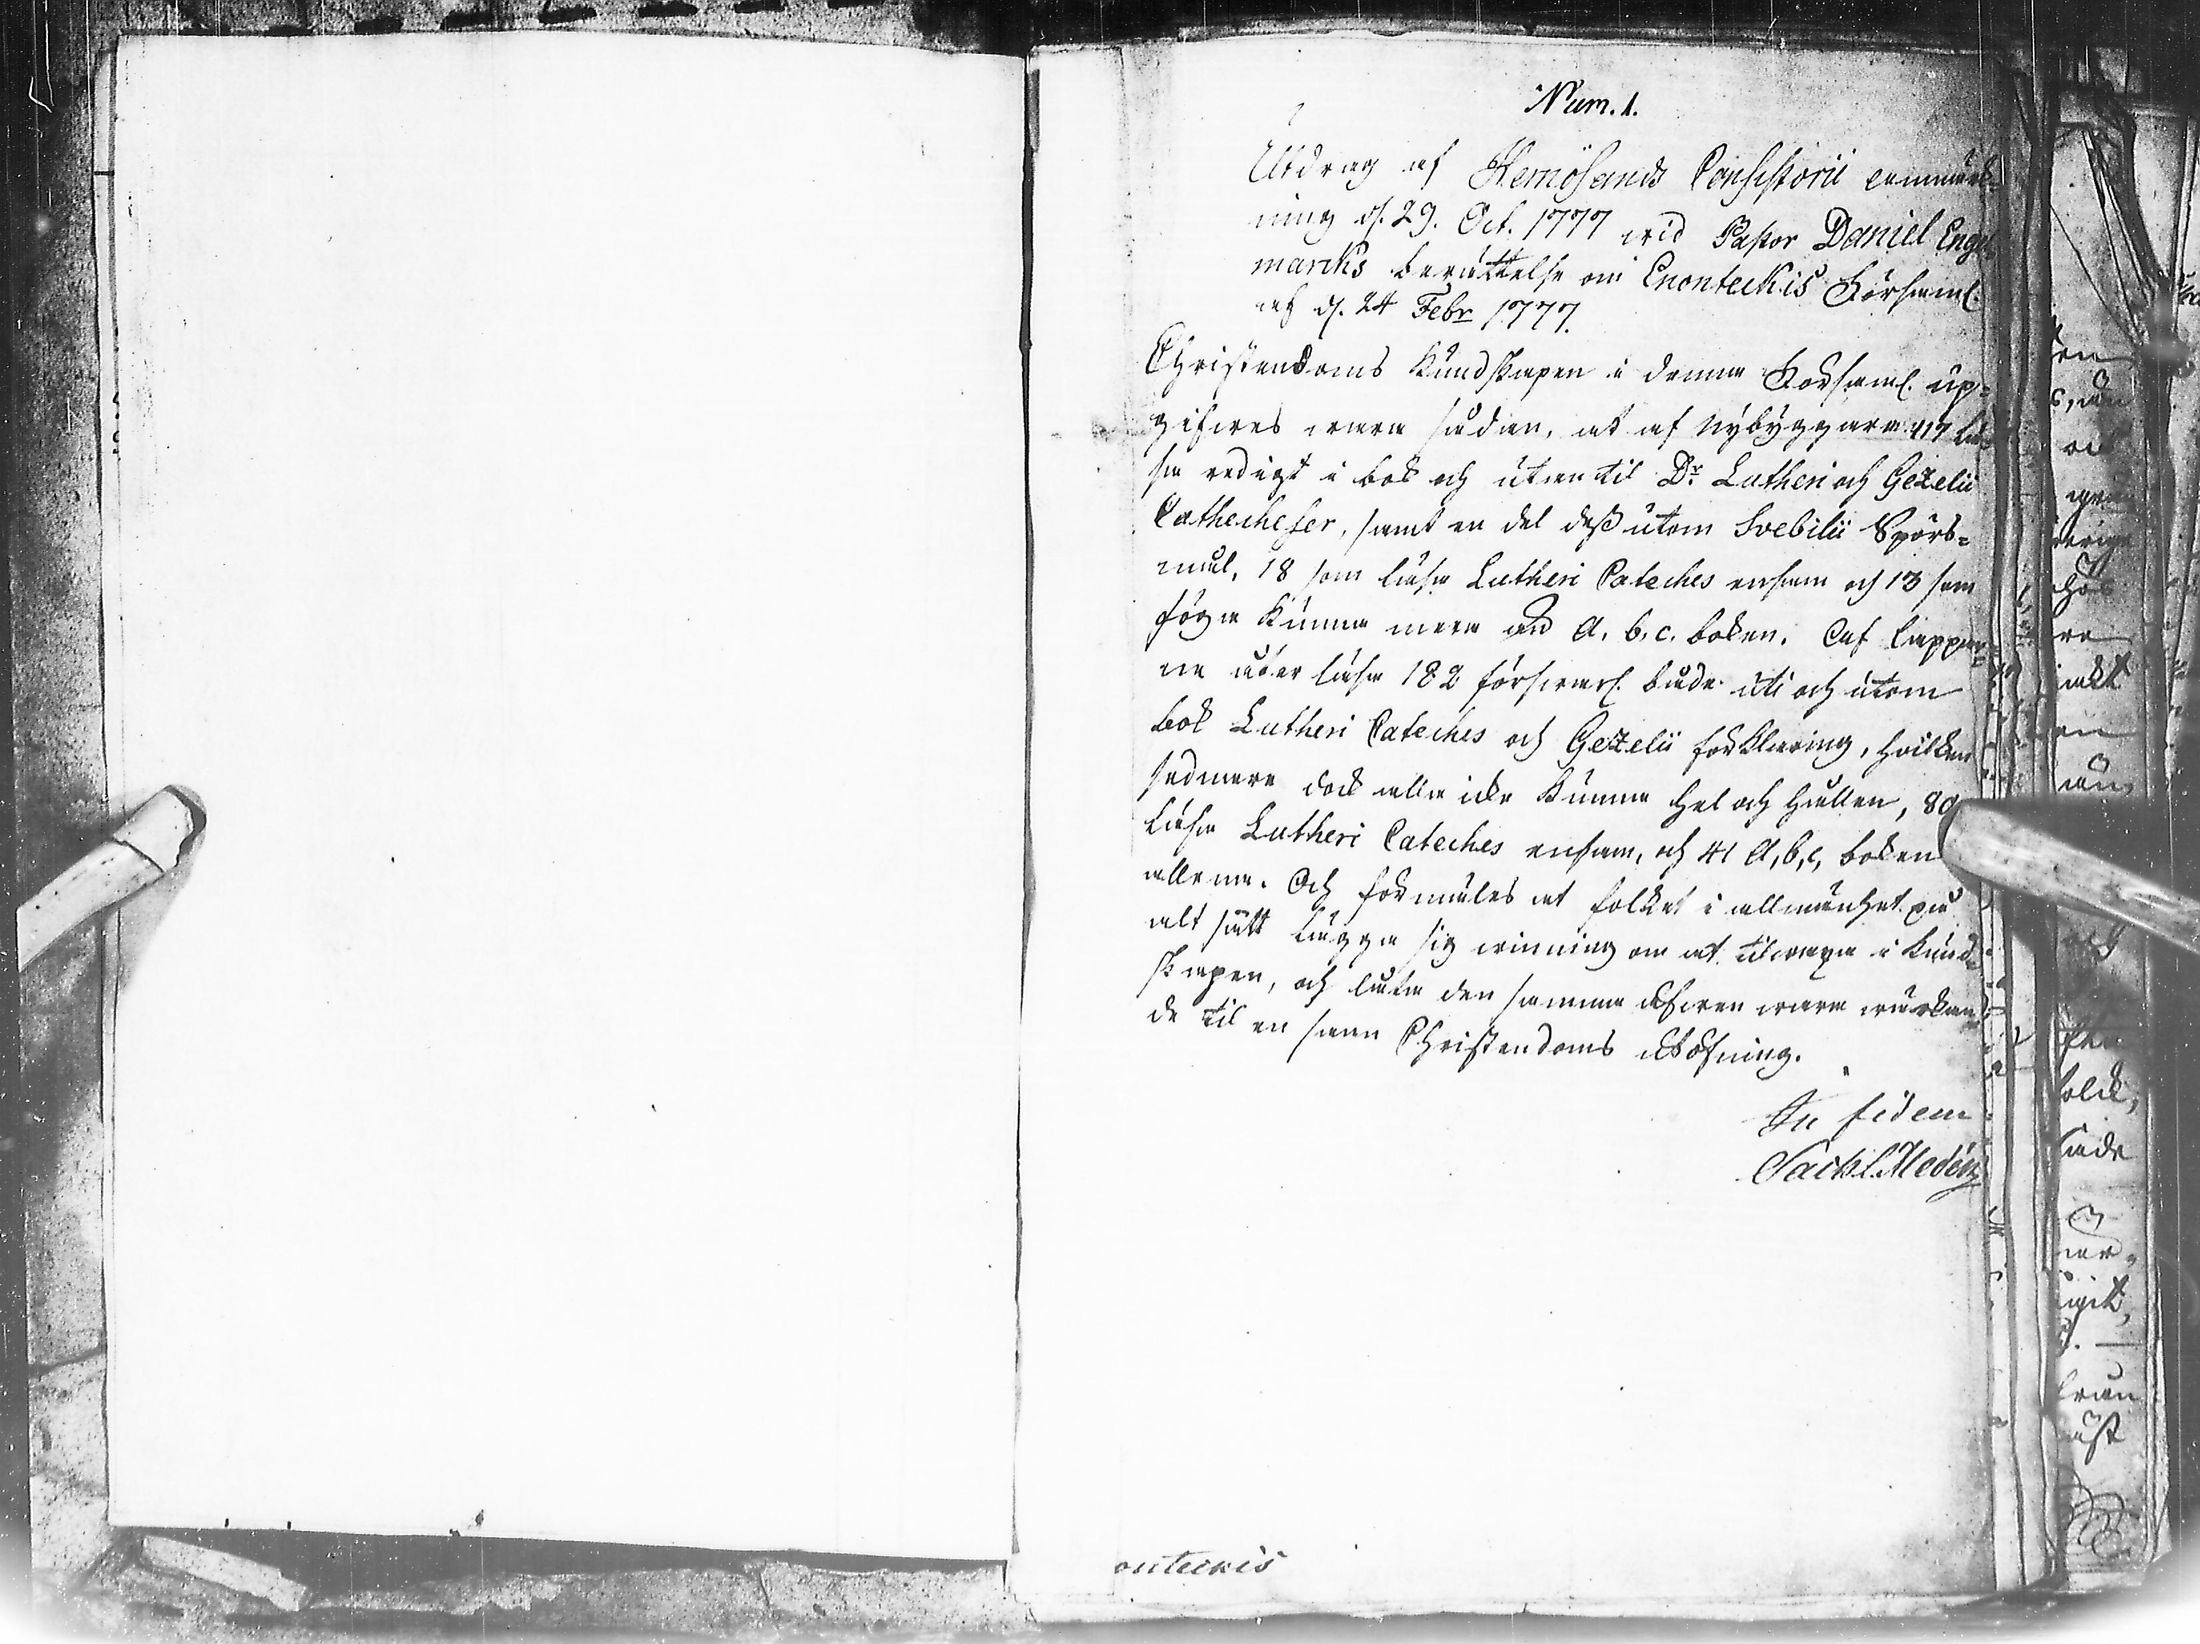 Num. 1.
Utdrag af Hernösands Consistorii anmärk-
ning d. 29. Oct. 1777 wid Pastor Daniel Engel
marcks berättelse om Enonteckis Församl.
af d. 24 Febr 1777.
Christendoms Kundskapen i denna Församl. up-
gifwes wara sådan, at af Nybyggare 117 lä-
sa redigt i bok och utantil Dr. Lutheri och Gezelii
Cathecheser, samt en del dessutom Svebilii Spörs-
mål, 18 som läsa Lutheri Cateches ensam och 13 som
föga kunna mera än A. b. c. boken. Af Lappar-
na åter läsa 182 förswarl. både uti och utom
bok Lutheri Cateches och Gezelii förklaring, hvilken
sednare dock alla icke kunna hel och hållen, 80
läsa Lutheri Cateches ensam, och 41 A, b, c, boken
allena. Och förmäles at folket i allmänhet på
alt sätt läggia sig winning om at tilwäxa i kund-
skapen, och låta den samma äfwen wara wärkan-
de til en sann Christendoms öfning.
In fidem
onteckis